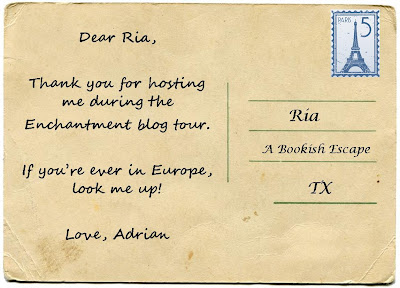 Dear Ria,
Thank you for hosting
me during the
Enchantment blog tour.
If you're ever in Europe,
look me up!
Love, Adrian
PARIS
5
Ria
A Bookish Escape
TX